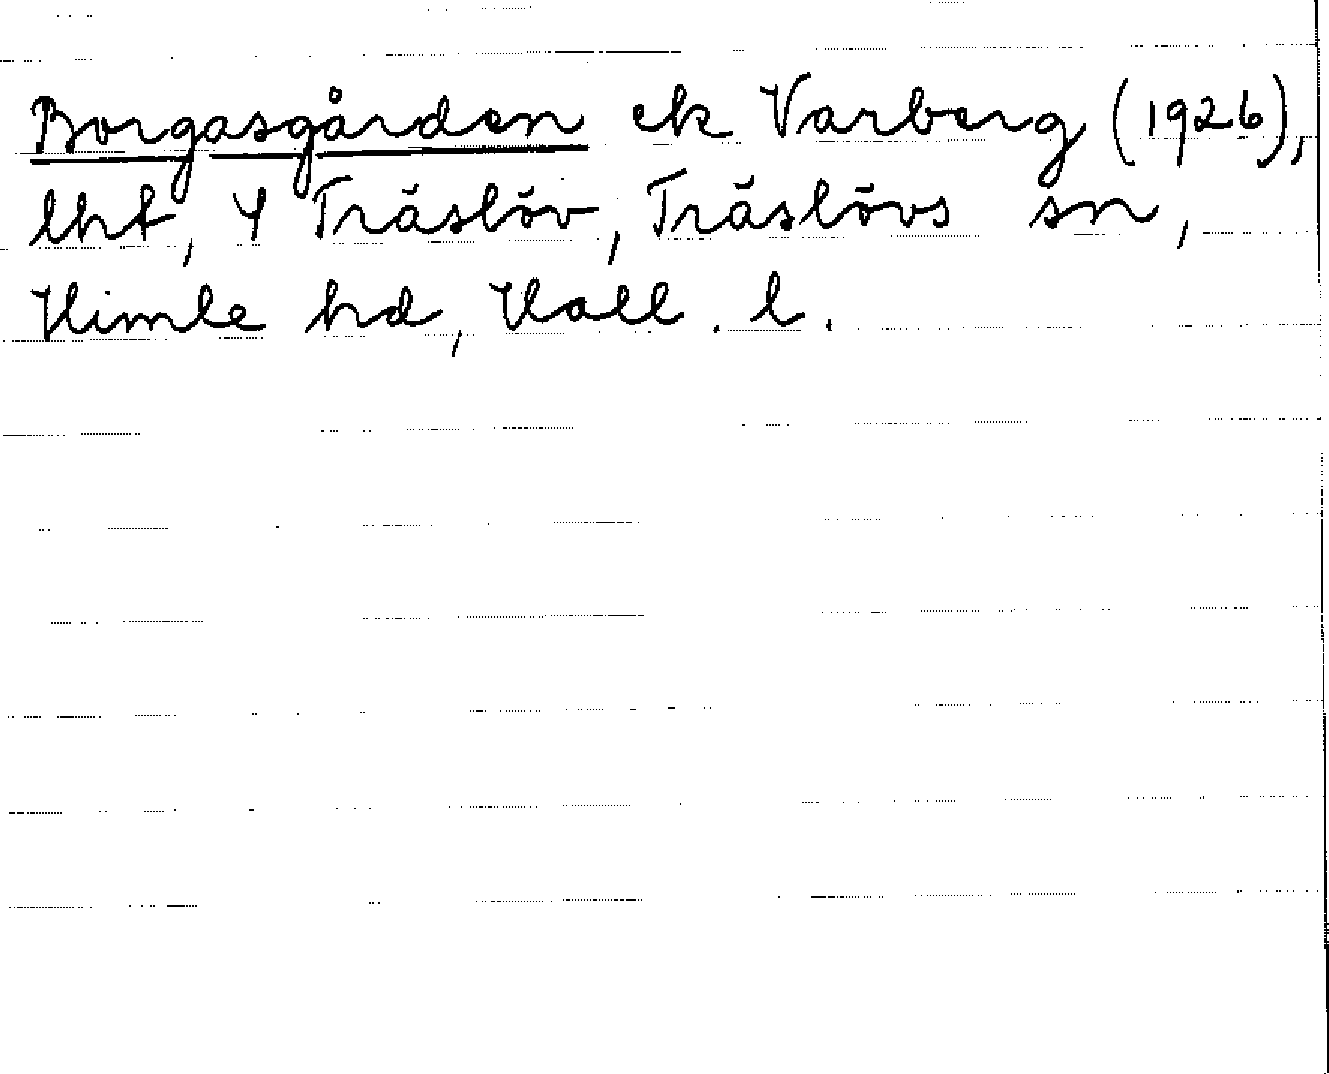 Borgasgården ek Varberg (1926),
lht, 4 Träslöv, Träslövs sn,
Himle hd, Hall. l.